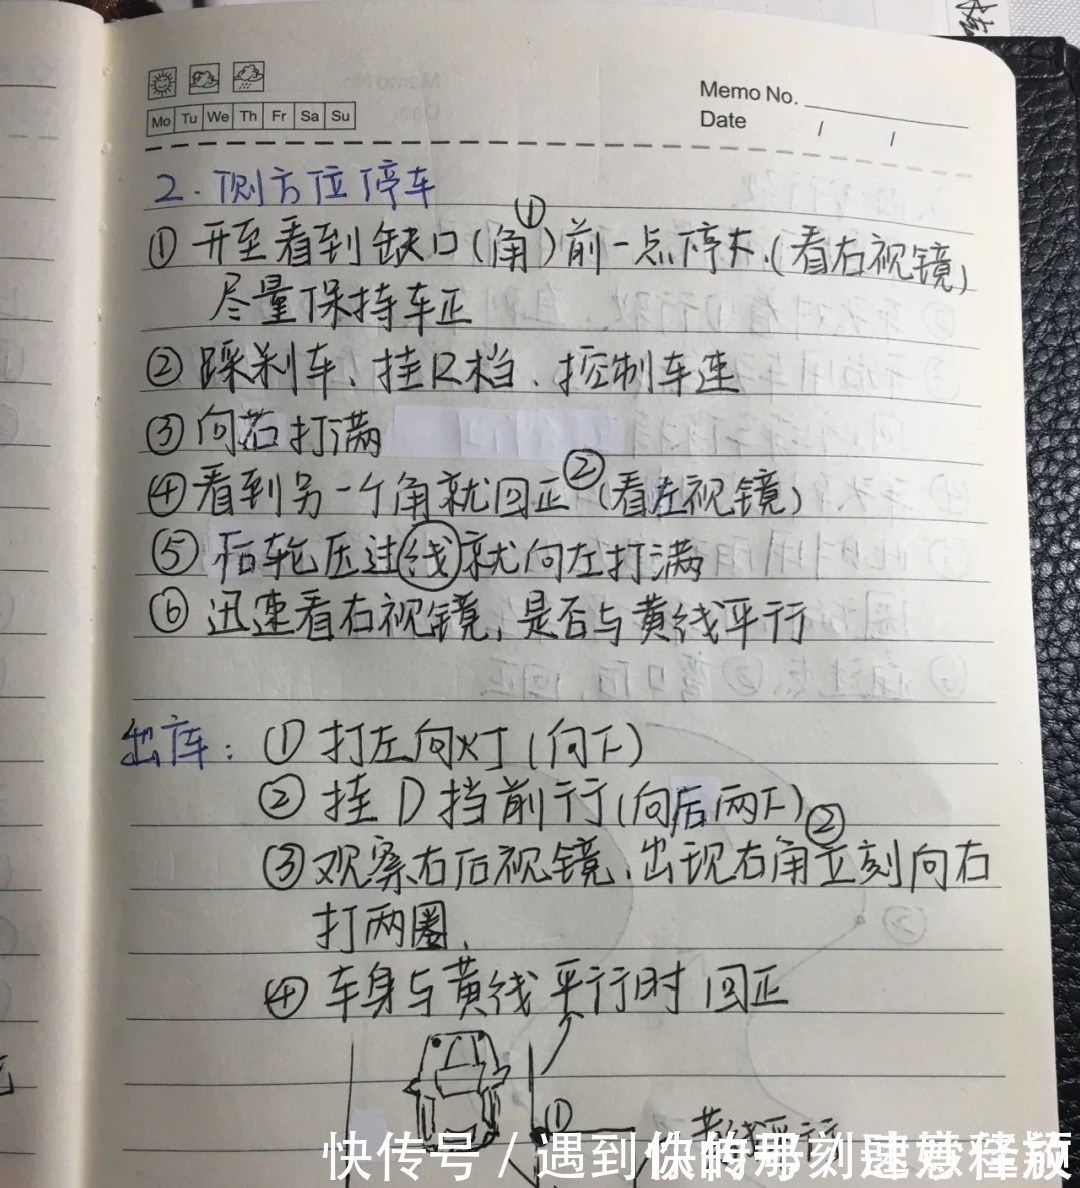 Memo No.
Mo Tu We Th Fr Sa Su
Date / /
2. 侧方位停车
①
① 开至看到缺口(角)前一点停下.(看右视镜)
尽量保持车正
② 踩刹车、挂R档、控制车速
③ 向右打满
④ 看到另一个角就回正②(看左视镜)
⑤ 后轮压过线就向左打满
⑥ 迅速看右视镜,是否与黄线平行
出库: ① 打左向灯(向下)
② 挂D挡前行(向后两下)
②
③ 观察右后视镜,出现右角立刻向右
打两圈.
④ 车身与黄线平行时回正
①
黄线平行
快传号 / 遇到你的那